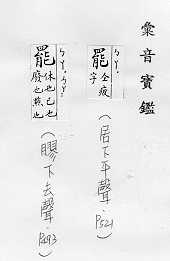 彙音寶鑑
ㄅㄚ。
罷
仝疲
字
(居下平聲.P521
ㄅㄚ。ㄅㄚˋ
罷
休也已也
廢也疲也
(膠下去聲.P293